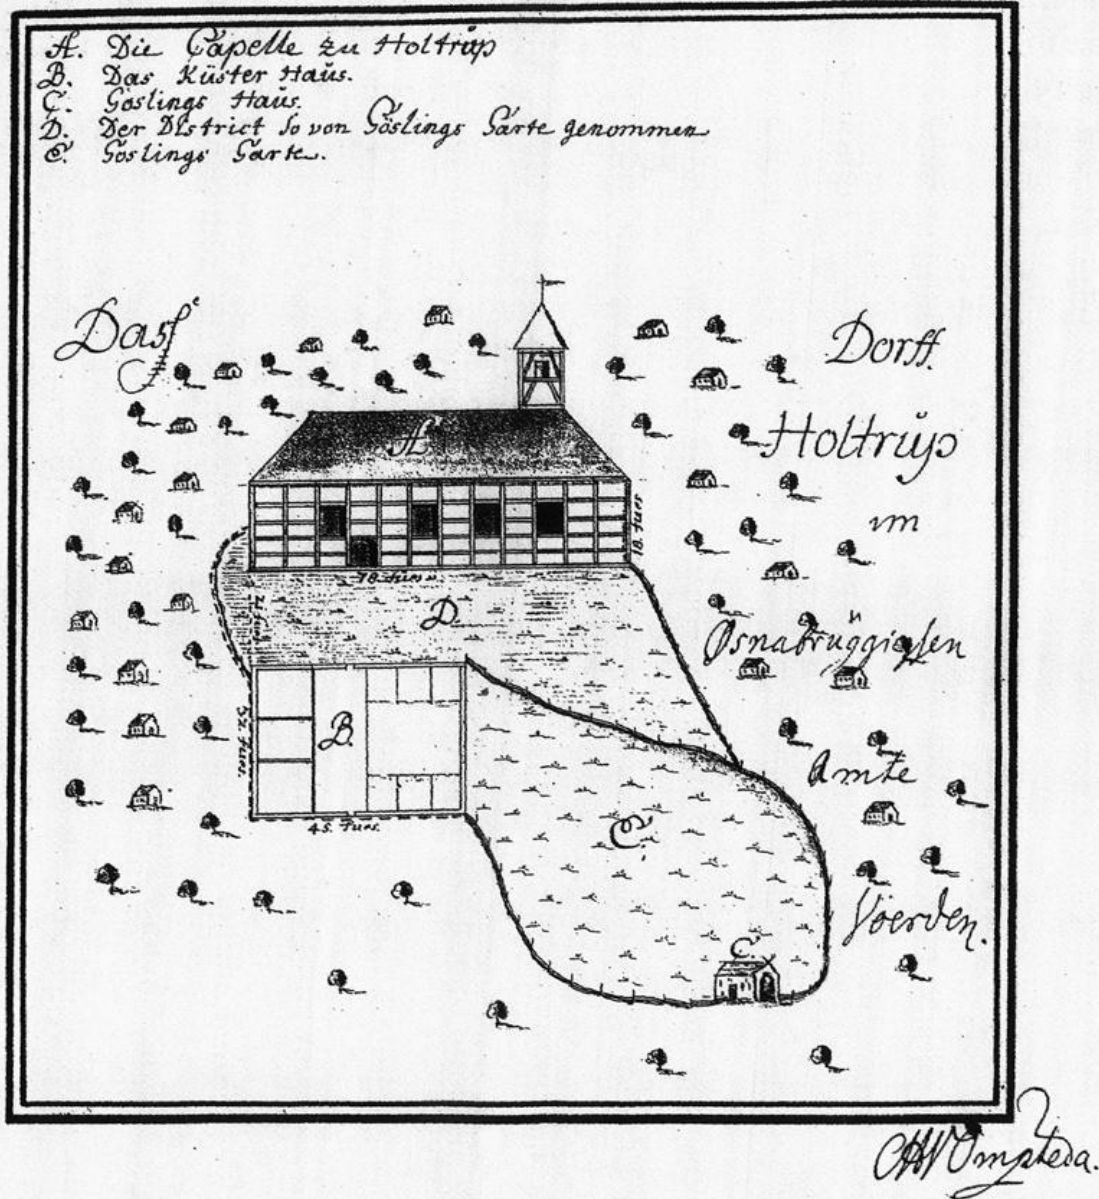 A. Die Capelle zu Holtrup
B. Das Küster Haus.
C. Goslings Haus.
D. Der District so von Göslings Garte genommen
E. Goslings Garte.
Das
Dorff.
Holtrup
im
Osnabrüggischen
Amte
Voerden.
A
18. fues
78. fues
D.
B.
45. fues.
E.
C
Ompteda.